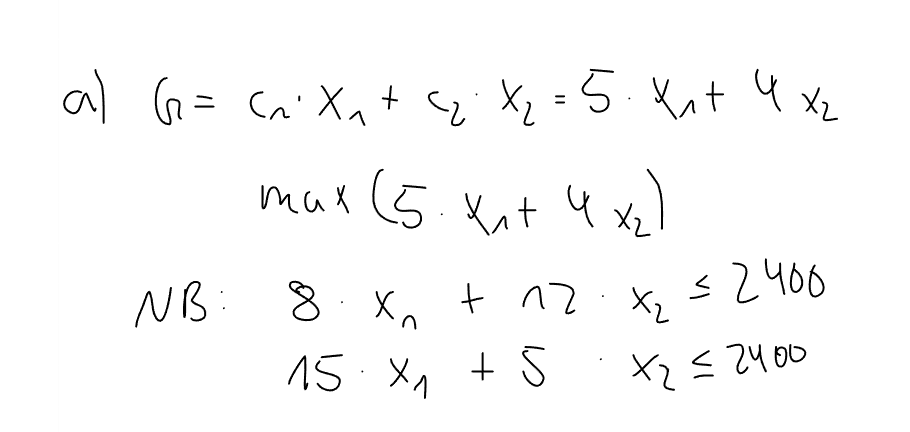 a) G = c₁ · x₁ + c₂ · x₂ = 5 · x₁ + 4 x₂
max (5 · x₁ + 4 x₂)
NB: 8 · x₁ + 12 · x₂ ≤ 2400
15 · x₁ + 5 · x₂ ≤ 2400